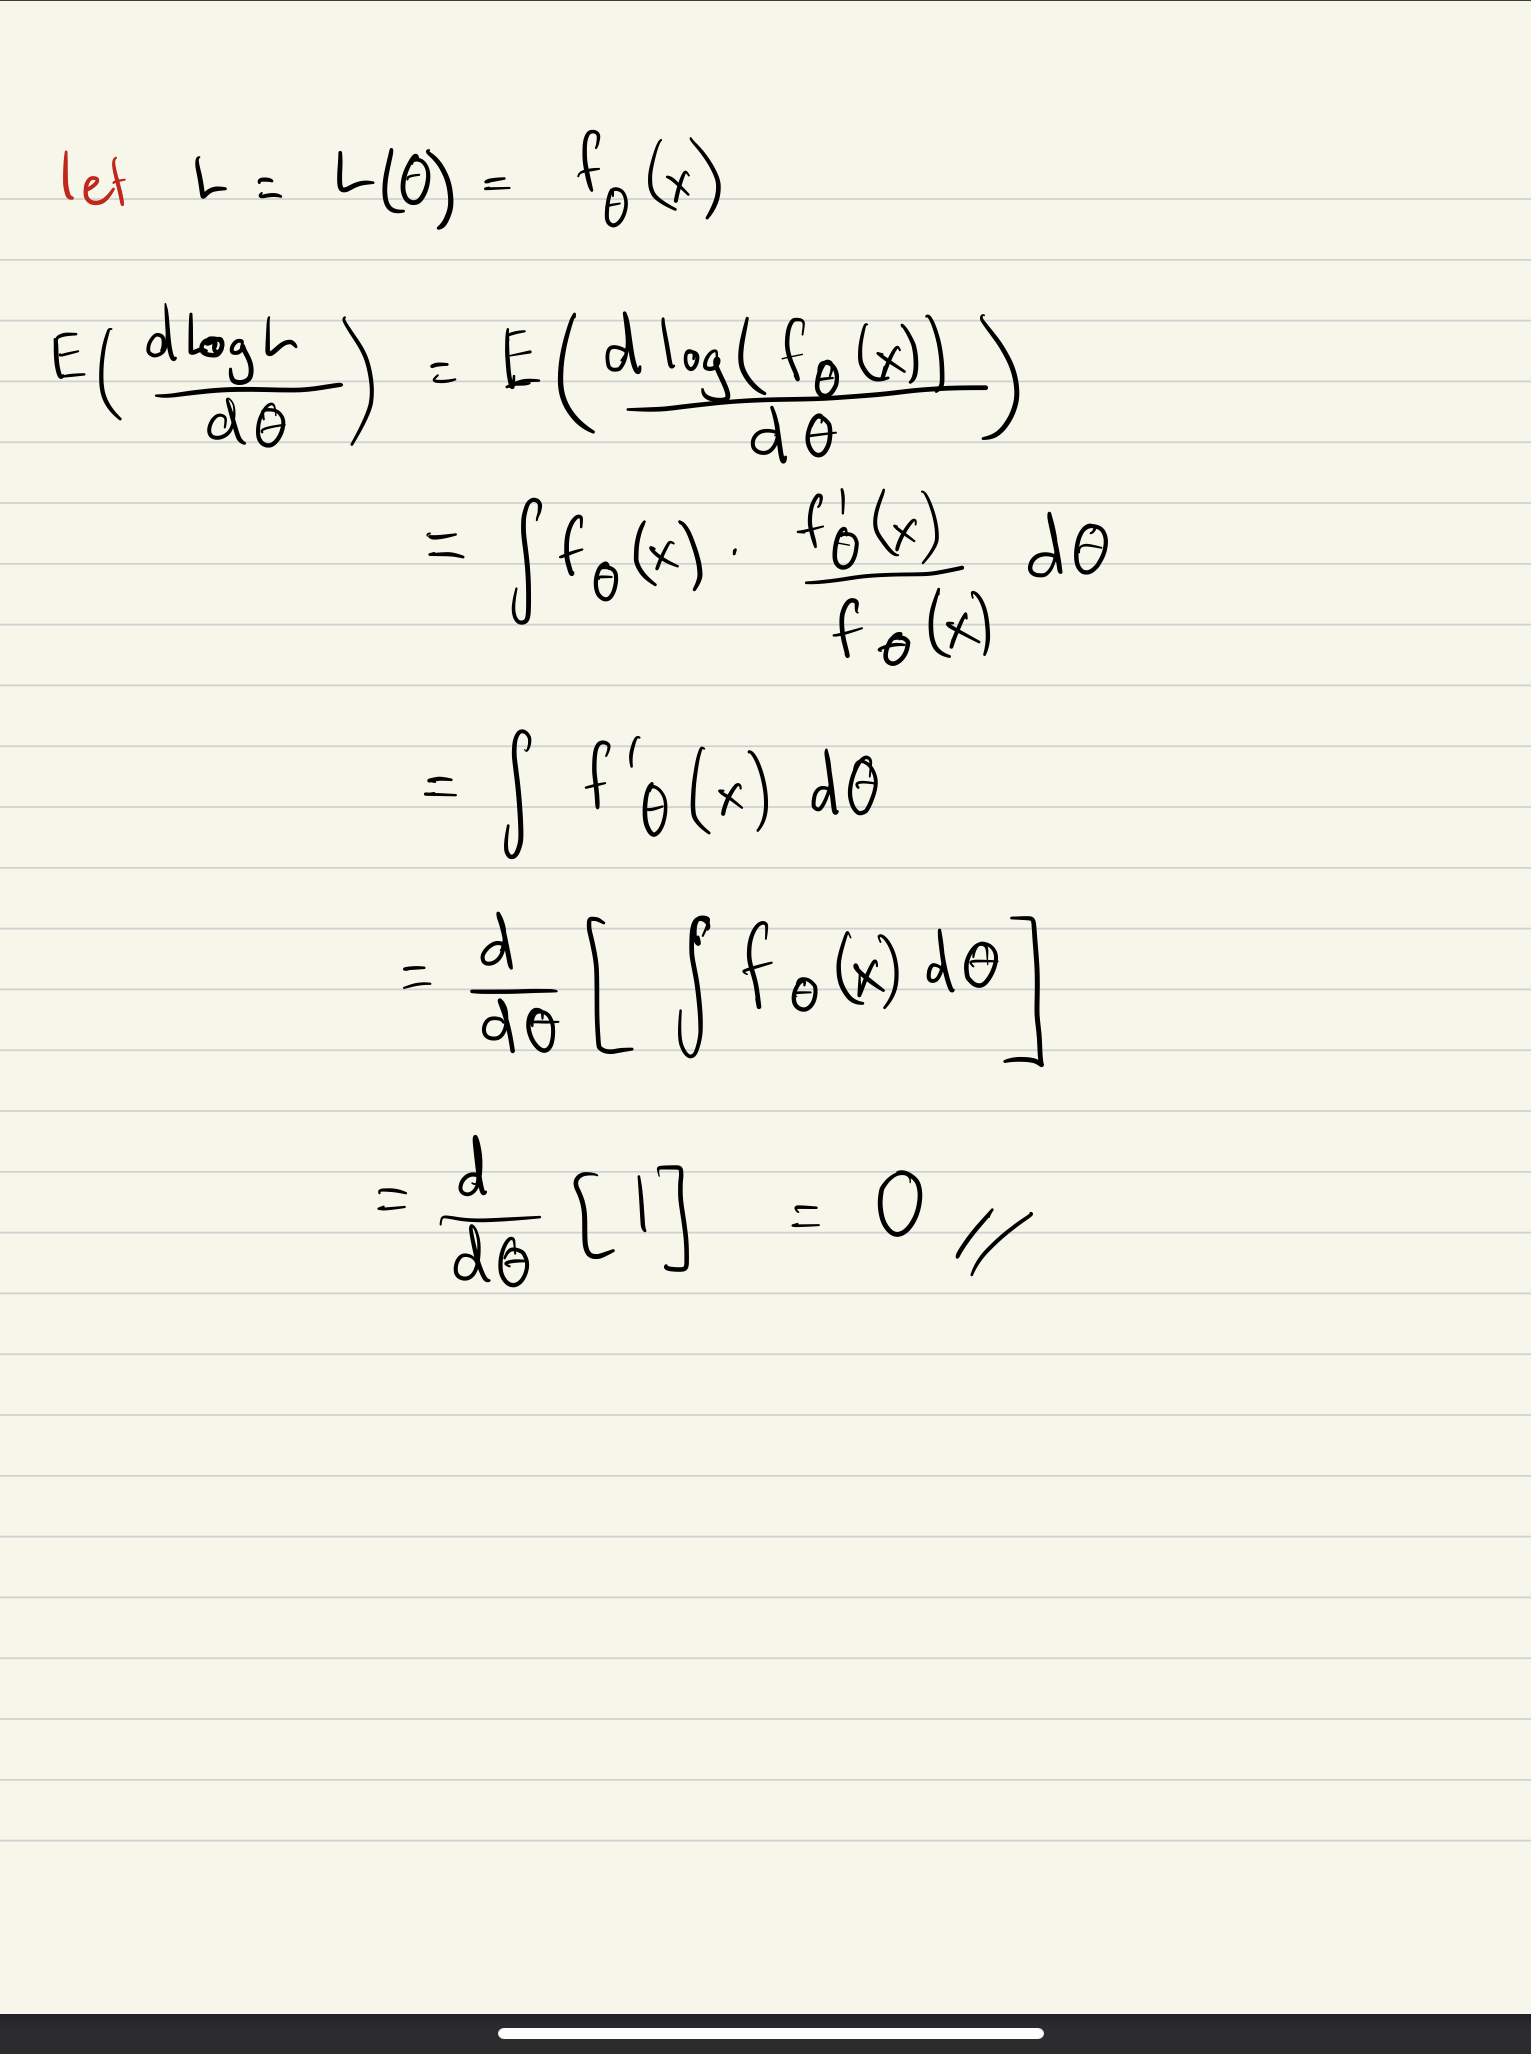 let L = L(θ) = f_θ(x)
E(dlogL/dθ) = E(dlog(f_θ(x))/dθ)
= ∫ f_θ(x) · f'_θ(x)/f_θ(x) dθ
= ∫ f'_θ(x) dθ
= d/dθ [∫ f_θ(x) dθ]
= d/dθ [1] = 0 //